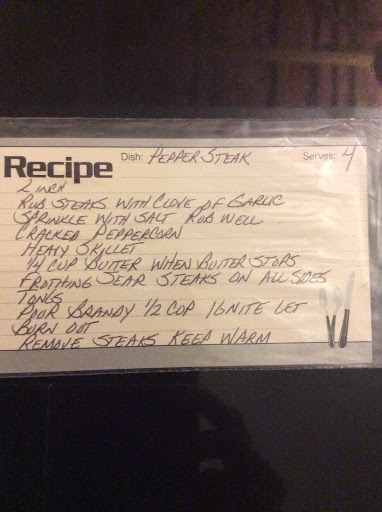 Recipe Dish: PEPPER STEAK Serves: 4
2 INCH
RUB STEAKS WITH CLOVE OF GARLIC
SPRINKLE WITH SALT RUB WELL
CRACKED PEPPERCORN
HEAVY SKILLET
1/4 CUP BUTTER WHEN BUTTER STOPS
FROTHING SEAR STEAKS ON ALL SIDES
TONGS
POUR BRANDY 1/2 COP IGNITE LET
BURN OUT
REMOVE STEAKS KEEP WARM